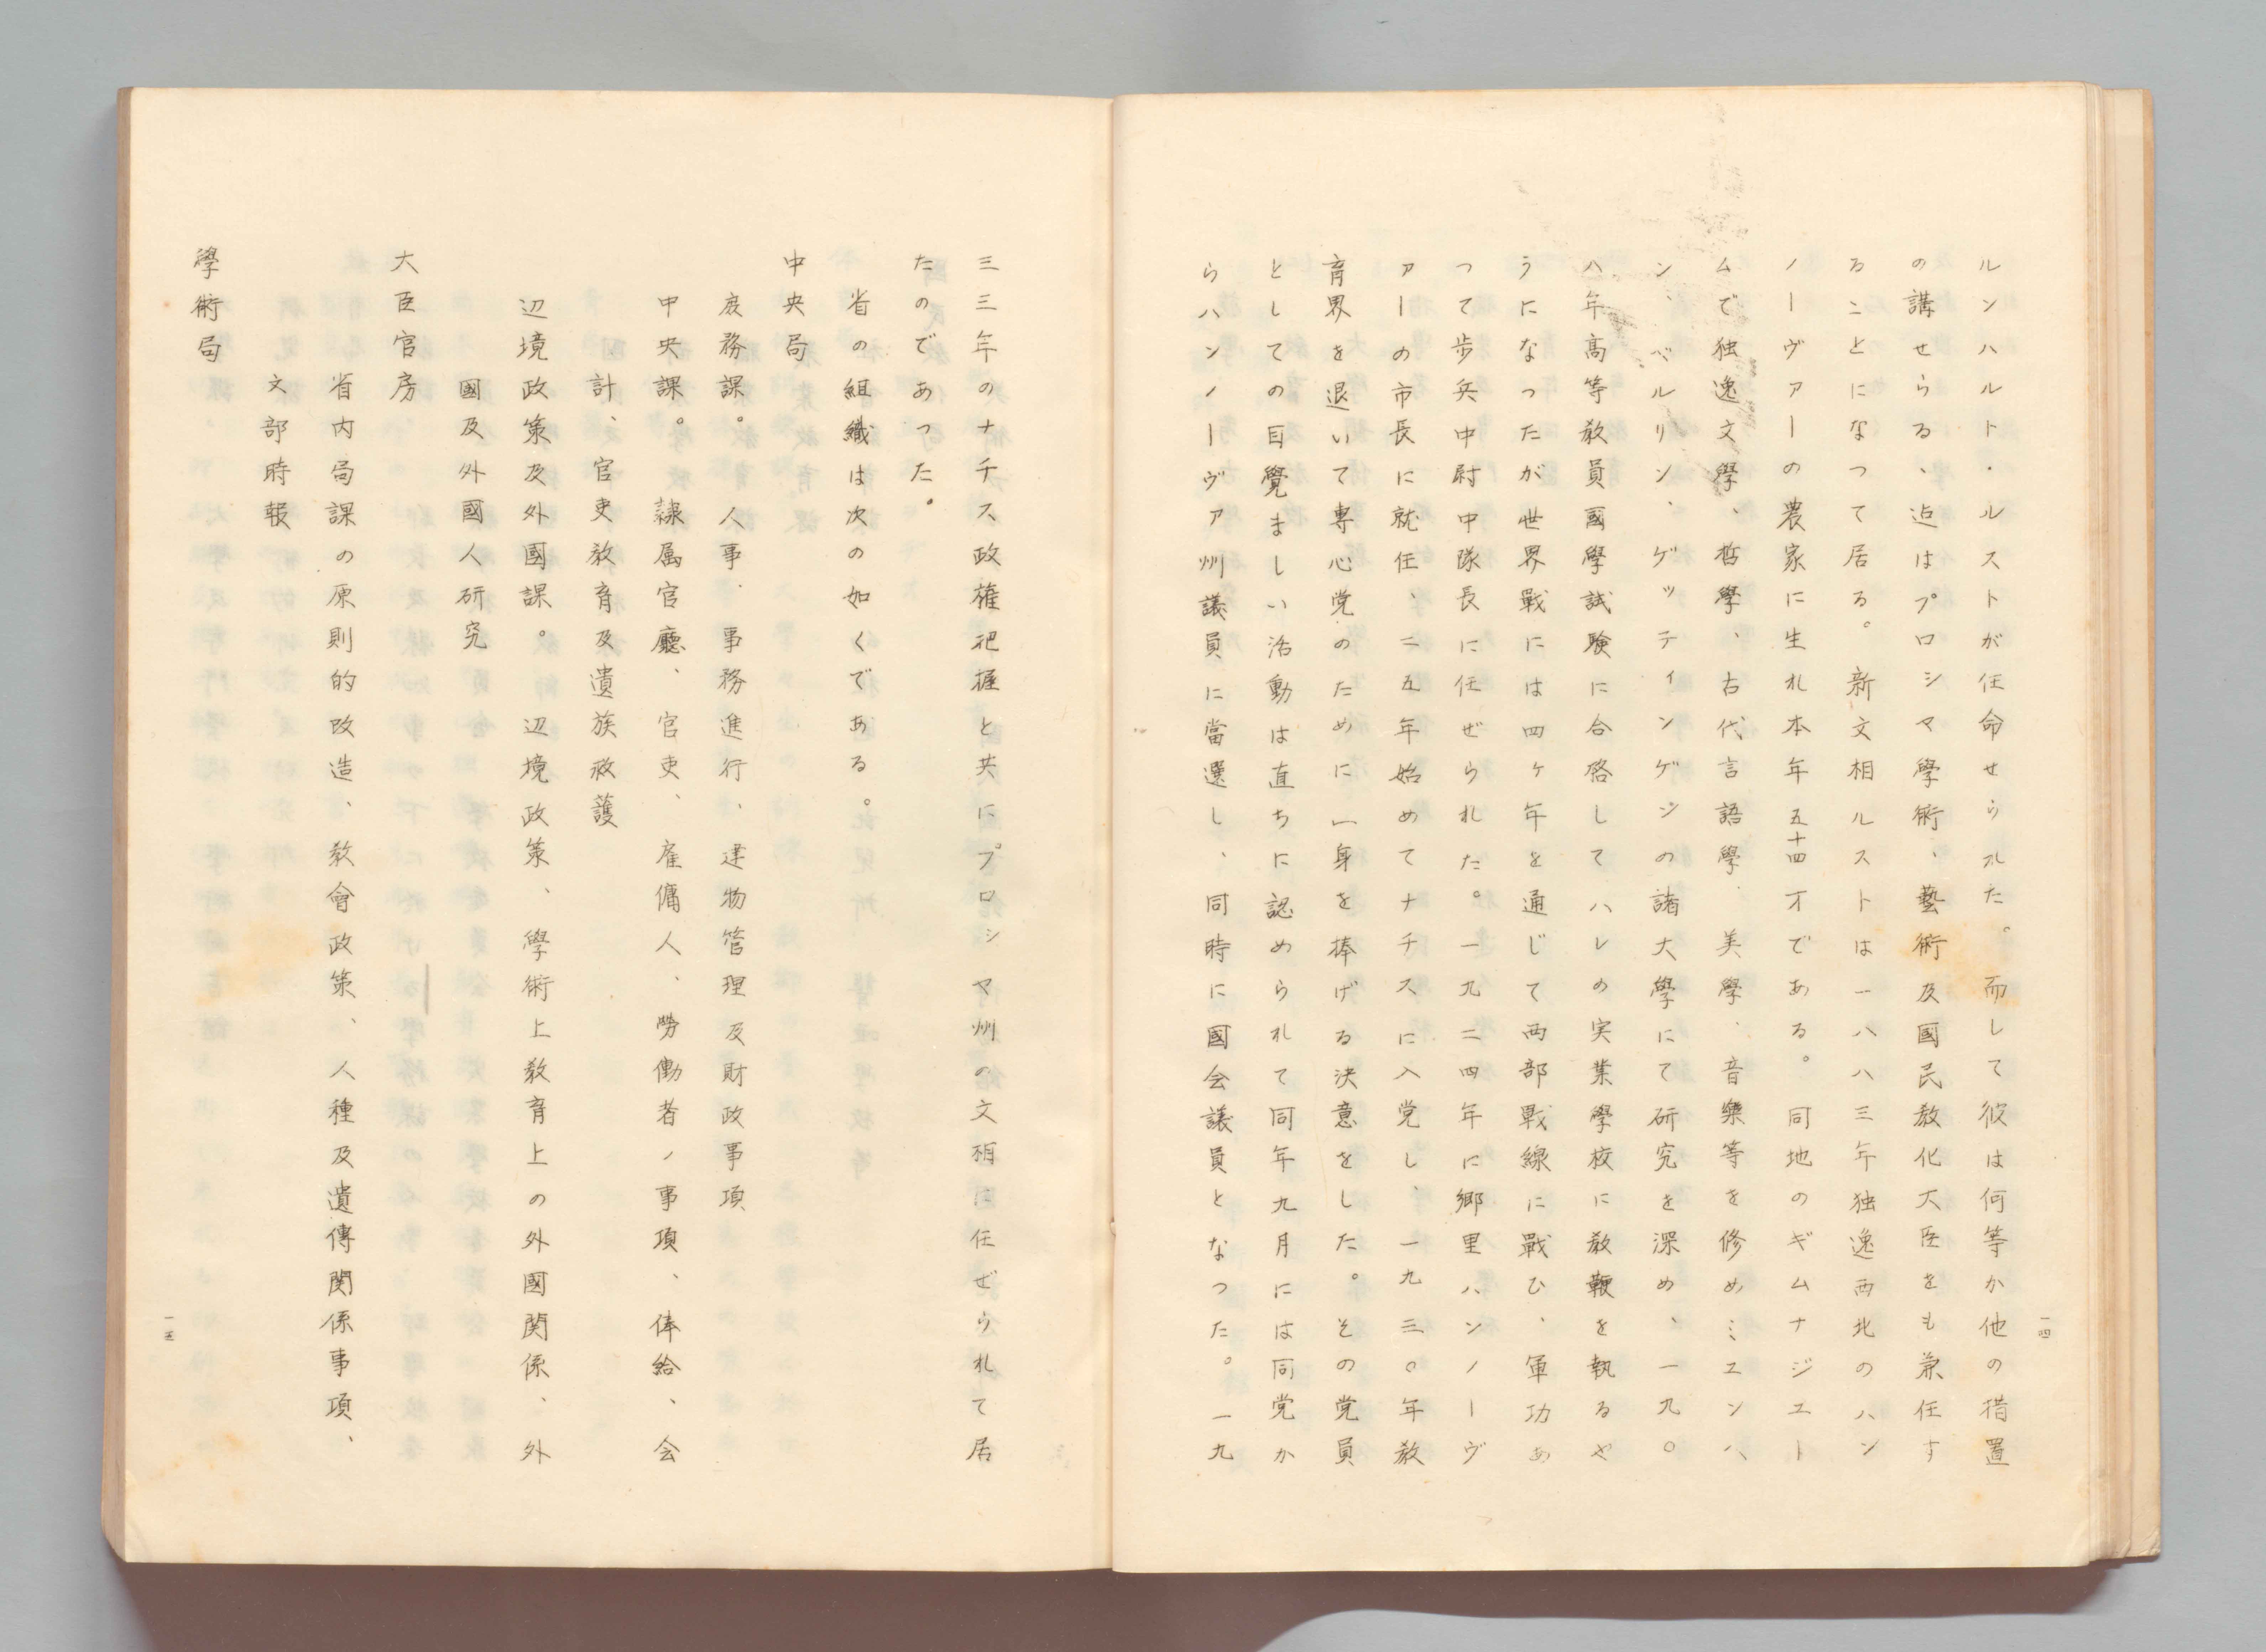 一四
ルンハルト・ルストが任命せられた。而して彼は何等か他の措置
の講せらる、迠はプロシマ學術、藝術及國民教化大臣をも兼任す
ることになつて居る。新文相ルストは一八八三年独逸西北のハン
ノーヴァーの農家に生れ本年五十四才である。同地のギムナジエー
ムで独逸文學、哲學、古代言語學、美學、音樂等を修めミエンハ
ン、ベルリン、ゲッティンゲンの諸大學にて研究を深め、一九〇
八年高等教員國學試験に合啓してハレの実業學校に教鞭を執るや
うになつたが世界戰には四ヶ年を通じて両部戰線に戰ひ、軍功あ
つて歩兵中尉中隊長に任ぜられた。一九二四年に郷里ハンノーヴ
ァーの市長に就任、二五年始めてナチスに入党し、一九三〇年教
育界を退いて専心党のために一身を捧げる決意をした。その党員
としての目覺ましい活動は直ちに認められて同年九月には同党か
らハンノーヴァ州議員に當選し、同時に國会議員となつた。一九
三三年のナチス政権祀握と共にプロシヤ州の文相に任ぜられて居
たのであった。
省の組織は次の如くである。
中央局
庶務課。人事、事務進行、建物管理及財政事項
中央課。隷属官廳、官吏、雇傭人、勞働者ノ事項、俸給、会
計、官吏教育及遺族救護
辺境政策及外國課。辺境政策、學術上教育上の外國関係、外
國及外國人研究
大臣官房
省内局課の原則的改造、教會政策、人種及遺傳関係事項、
文部時報
學術局
一五